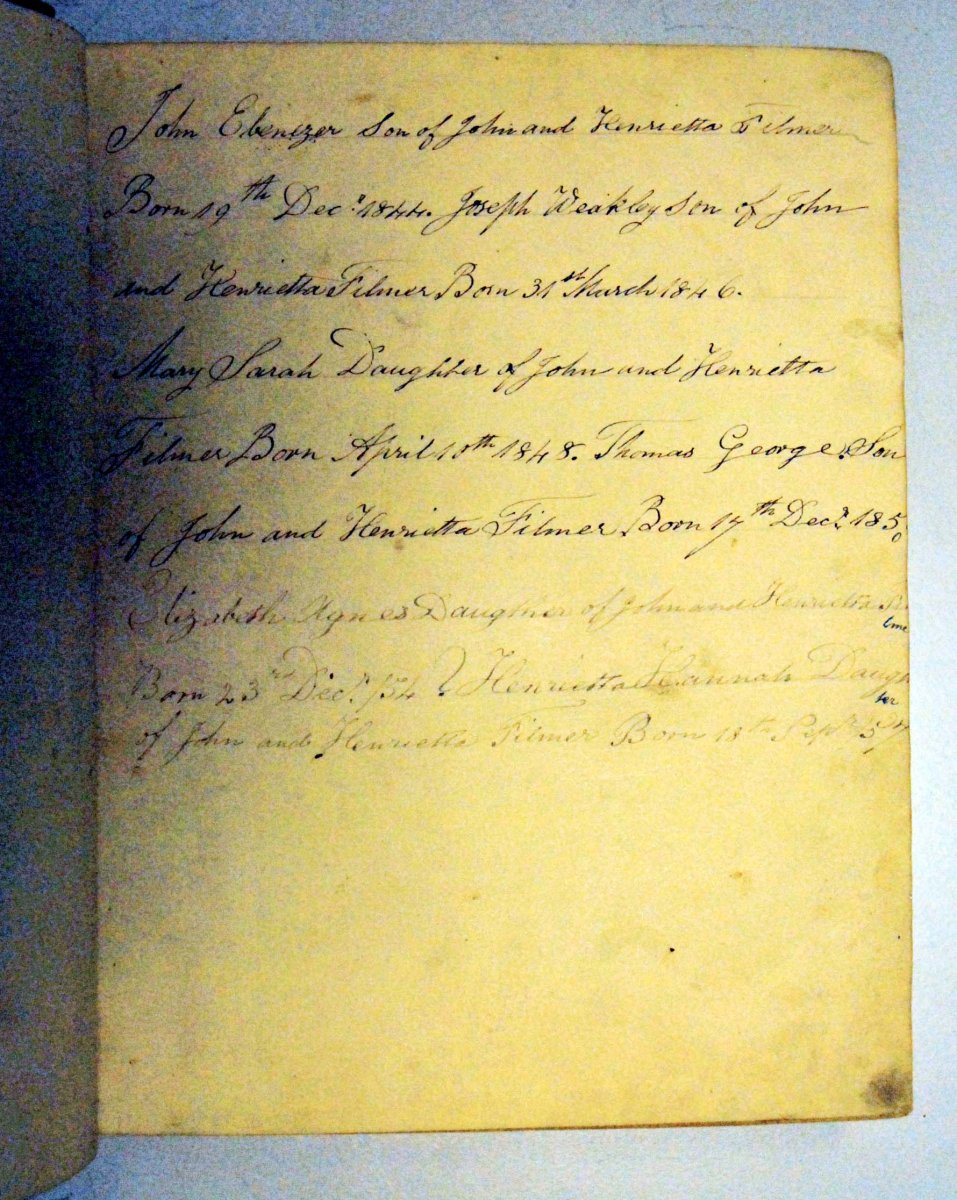 John Ebenezer Son of John and Henrietta Filmer
Born 19th Decr. 1844. Joseph Weakley Son of John
and Henrietta Filmer Born 31st March 1846.
Mary Sarah Daughter of John and Henrietta
Filmer Born April 10th 1848. Thomas George Son
of John and Henrietta Filmer Born 17th Decr. 1850
Elizabeth Agnes Daughter of John and Henrietta Filmer
Born 23rd Decr. /54 Henrietta Hannah Daughter
of John and Henrietta Filmer Born 18th Sepr 57